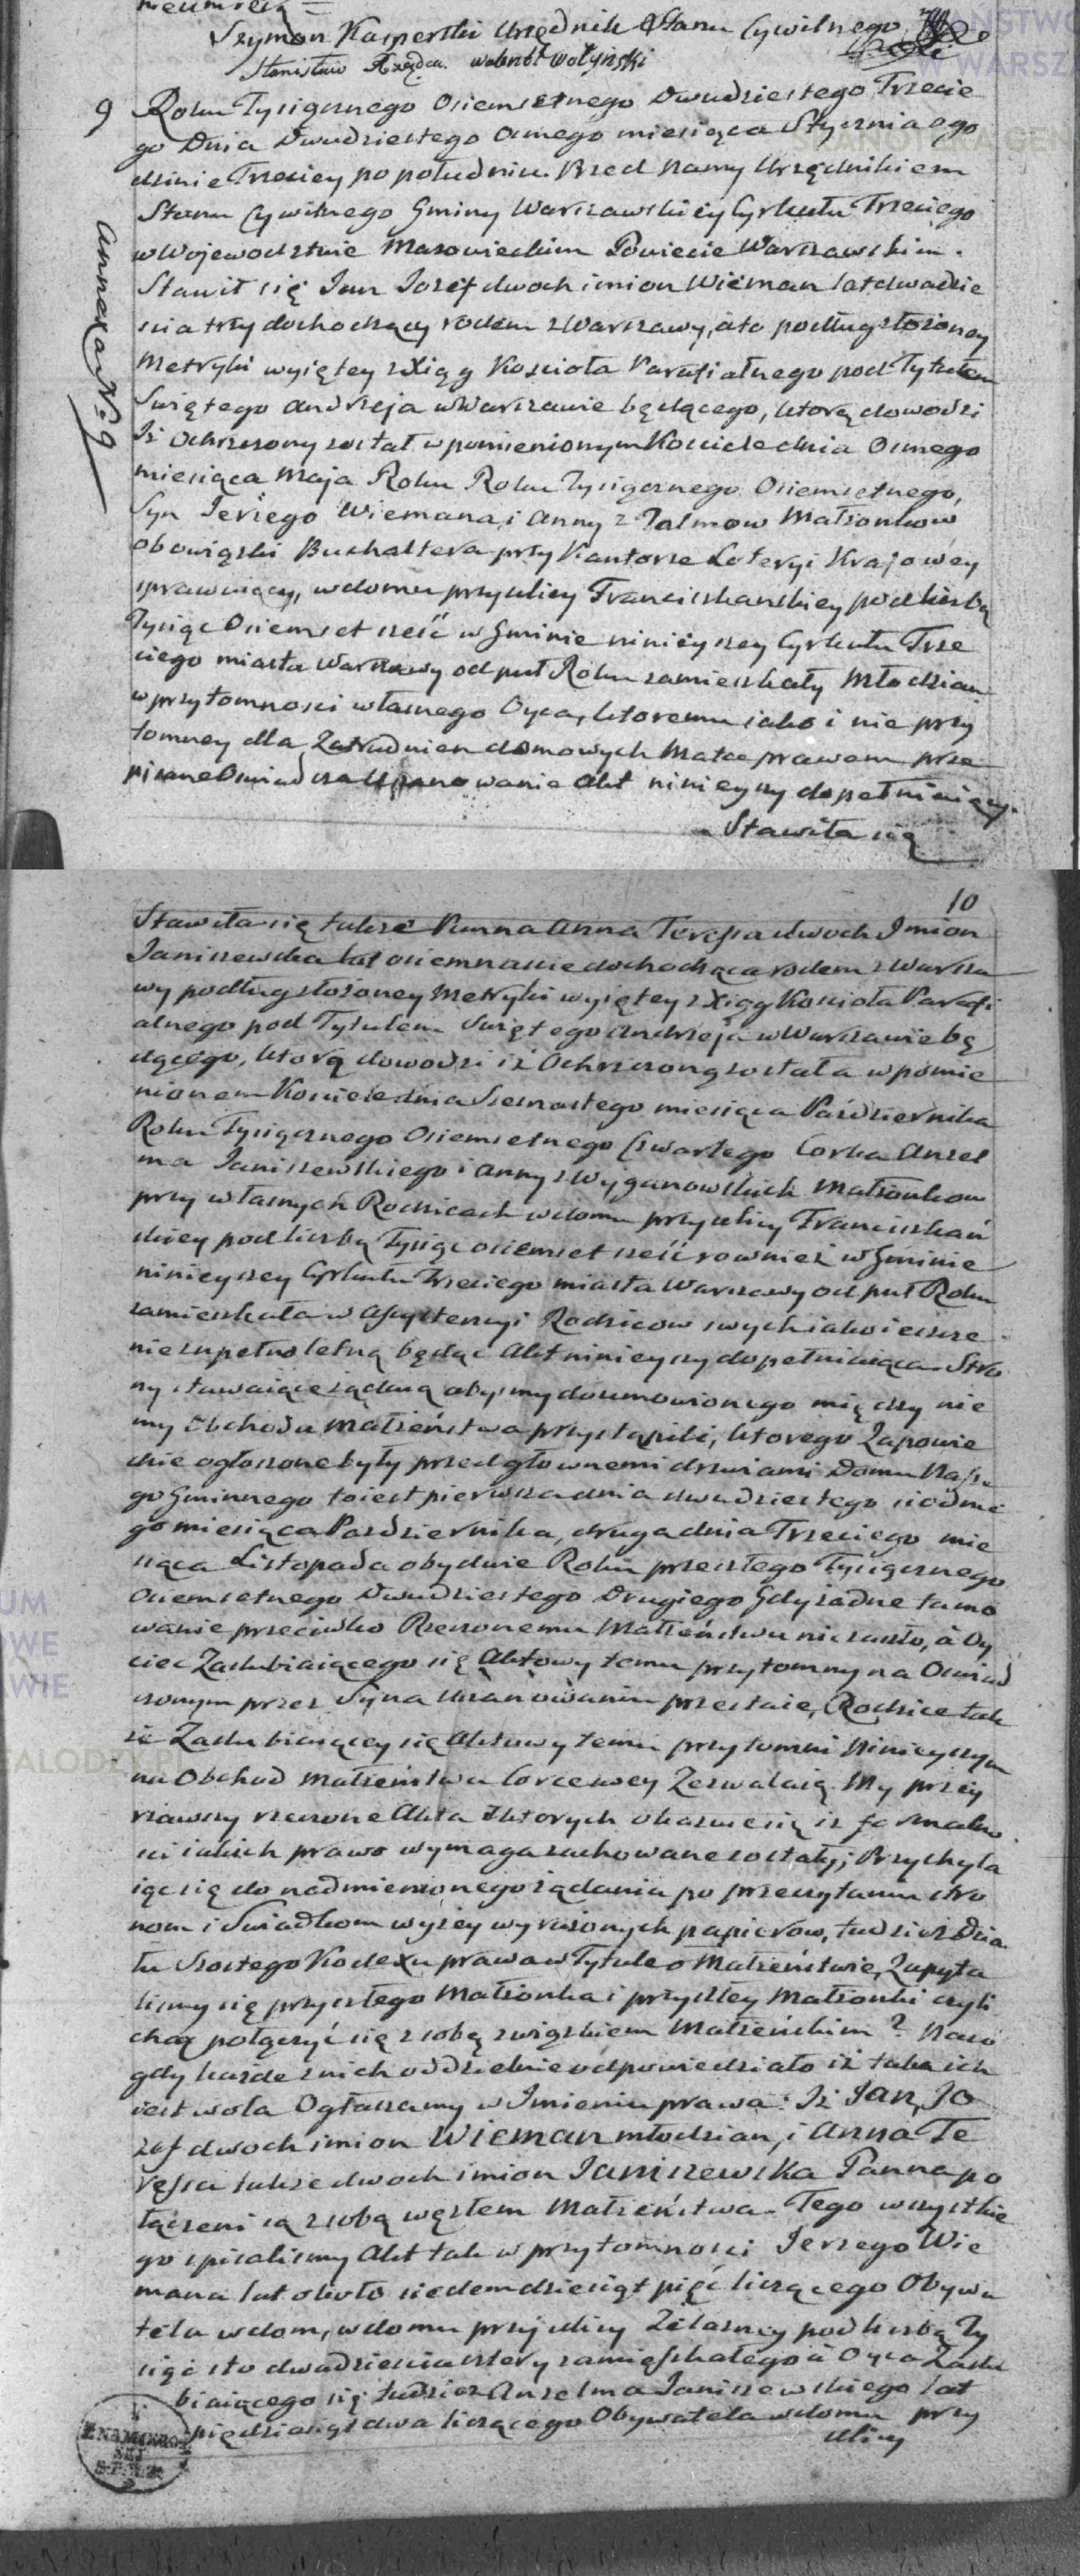 Szymon Kasperski Urzędnik Stanu Cywilnego
Stanisław Rządca
9 Roku Tysiącznego Osiemsetnego Dwudziestego Trzecie
go Dnia Dwudziestego Osmego miesiąca Stycznia o go
dzinie Trzeciey po południu. Przed Namy Urzędnikiem
Stanu Cywilnego Gminy Warszawskiey Cyrkułu Trzeciego
w Wojewodztwie Mazowieckim Powiecie Warszawskim.
Stawił się Jan Jozef dwoch imion Wieman lat dwadzie
scia trzy dochodzący rodem z Warszawy, a to podług złożoney
Metryki wyiętey z Xiąg Koscioła Parafialnego pod Tytułem
Swiętego Andrzeja w Warszawie będącego, ktorą dowodzi
Iż Ochrzczony został w pomienionym Kosciele dnia Osmego
miesiąca Maja Roku Roku Tysiącznego Osiemsetnego,
Syn Jerzego Wiemana i Anny z Małżonkow
obowiązki Buchaltera przy Kantorze Loteryi Krajowey
sprawuiący, w domu przy ulicy Franciszkanskiey pod liczbą
Tysiąc Osiemset sześć w Gminie ninieyszey Cyrkułu Trze
ciego miasta Warszawy od puł Roku zamieszkały Młodzian
w przytomnosci własnego Oyca, ktoremu iako i nie przy
tomney dla Zatrudnien domowych Matce prawem prze
pisane Oswiadcza Uszanowanie Akt ninieyszy dopełniaiący.
Stawiła się
Annexa No 9
10
Stawiła się także Panna Anna Teressa dwoch Imion
Janiszewska lat osiemnascie dochodząca rodem z Warsza
wy podług złożoney Metryki wyiętey z Xiąg Koscioła Parafi
alnego pod Tytułem Swiętego Andrzeja w Warszawie bę
dącego, ktorą dowodzi iż Ochrzczoną została w pomie
nionem Kosciele dnia Szesnastego miesiąca Października
Roku Tysiącznego Osiemsetnego Czwartego Corka Anzel
ma Janiszewskiego i Anny z Wyganowskich Małżonkow
przy własnych Rodzicach w domu przy ulicy Franciszkań
skiey pod liczbą Tysiąc osiemset sześć rownież w Gminie
ninieyszey Cyrkułu Trzeciego miasta Warszawy od puł Roku
zamieszkała w Assystencyi Rodzicow swych iako ieszcze
niezupełnoletną będąc Akt ninieyszy dopełniaiąca. Stro
ny stawaiące żądaią abysmy do umowionego między nie
my Obchodu Małżeństwa przystąpili, ktorego Zapowie
dzie ogłoszone były przed głownemi drzwiami Domu Nasze
go Gminnego to iest pierwsza dnia dwudziestego siodme
go miesiąca Pazdziernika, druga dnia Trzeciego mie
siąca Listopada obydwie Roku przeszłego Tysiącznego
Osiemsetnego Dwudziestego Drugiego Gdy żadne tamo
wanie przeciwko Rzeczonemu Małżeństwu nie zaszło, a Oy
ciec Zaslubiaiącego się Aktowy temu przytomny na Oswiad
czonym przez Syna Uszanowaniu przestaie, Rodzice tak
że Zaslubiaiącey się Aktowy temu przytomni Ninieyszym
na Obchod Małżeństwa Corce swey Zezwalaią. My przey
rzawszy rzeczone Akta z ktorych okazuie się iż formalno
sci iakich prawo wymaga zachowane zostały; Przychyla
iąc się do nadmienionego żądania po przeczytaniu stro
nom i Swiadkom wyżey wyrażonych papierow, tudzież Dzia
łu Szostego Kodexu prawa w Tytule o Małżeństwie, Zapyta
lismy się przyszłego Małżonka i przyszłey Małżonki czyli
chcą połączyć się z sobą związkiem Małżeńskim? Na co
gdy każde z nich oddzielnie odpowiedziało iż taka ich
iest wola Ogłaszamy w Imieniu prawa: Iż Jan, Jo
zef dwoch imion Wieman młodzian, i Anna Te
ressa także dwoch imion Janiszewska Panna po
łączeni są z sobą węzłem Małżeństwa. Tego wszystkie
go spisalismy Akt tak w przytomnosci Jerzego Wie
mana lat około siedemdziesiąt pięć liczącego Obywa
tela w domu przy ulicy Żelazney pod liczbą Ty
siąc sto dwadziescia cztery zamieszkałego a Oyca Zaslu
biaiącego się tudzież Anzelma Janiszewskiego lat
pięćdziesiąt dwa liczącego Obywatela w domu przy
ulicy